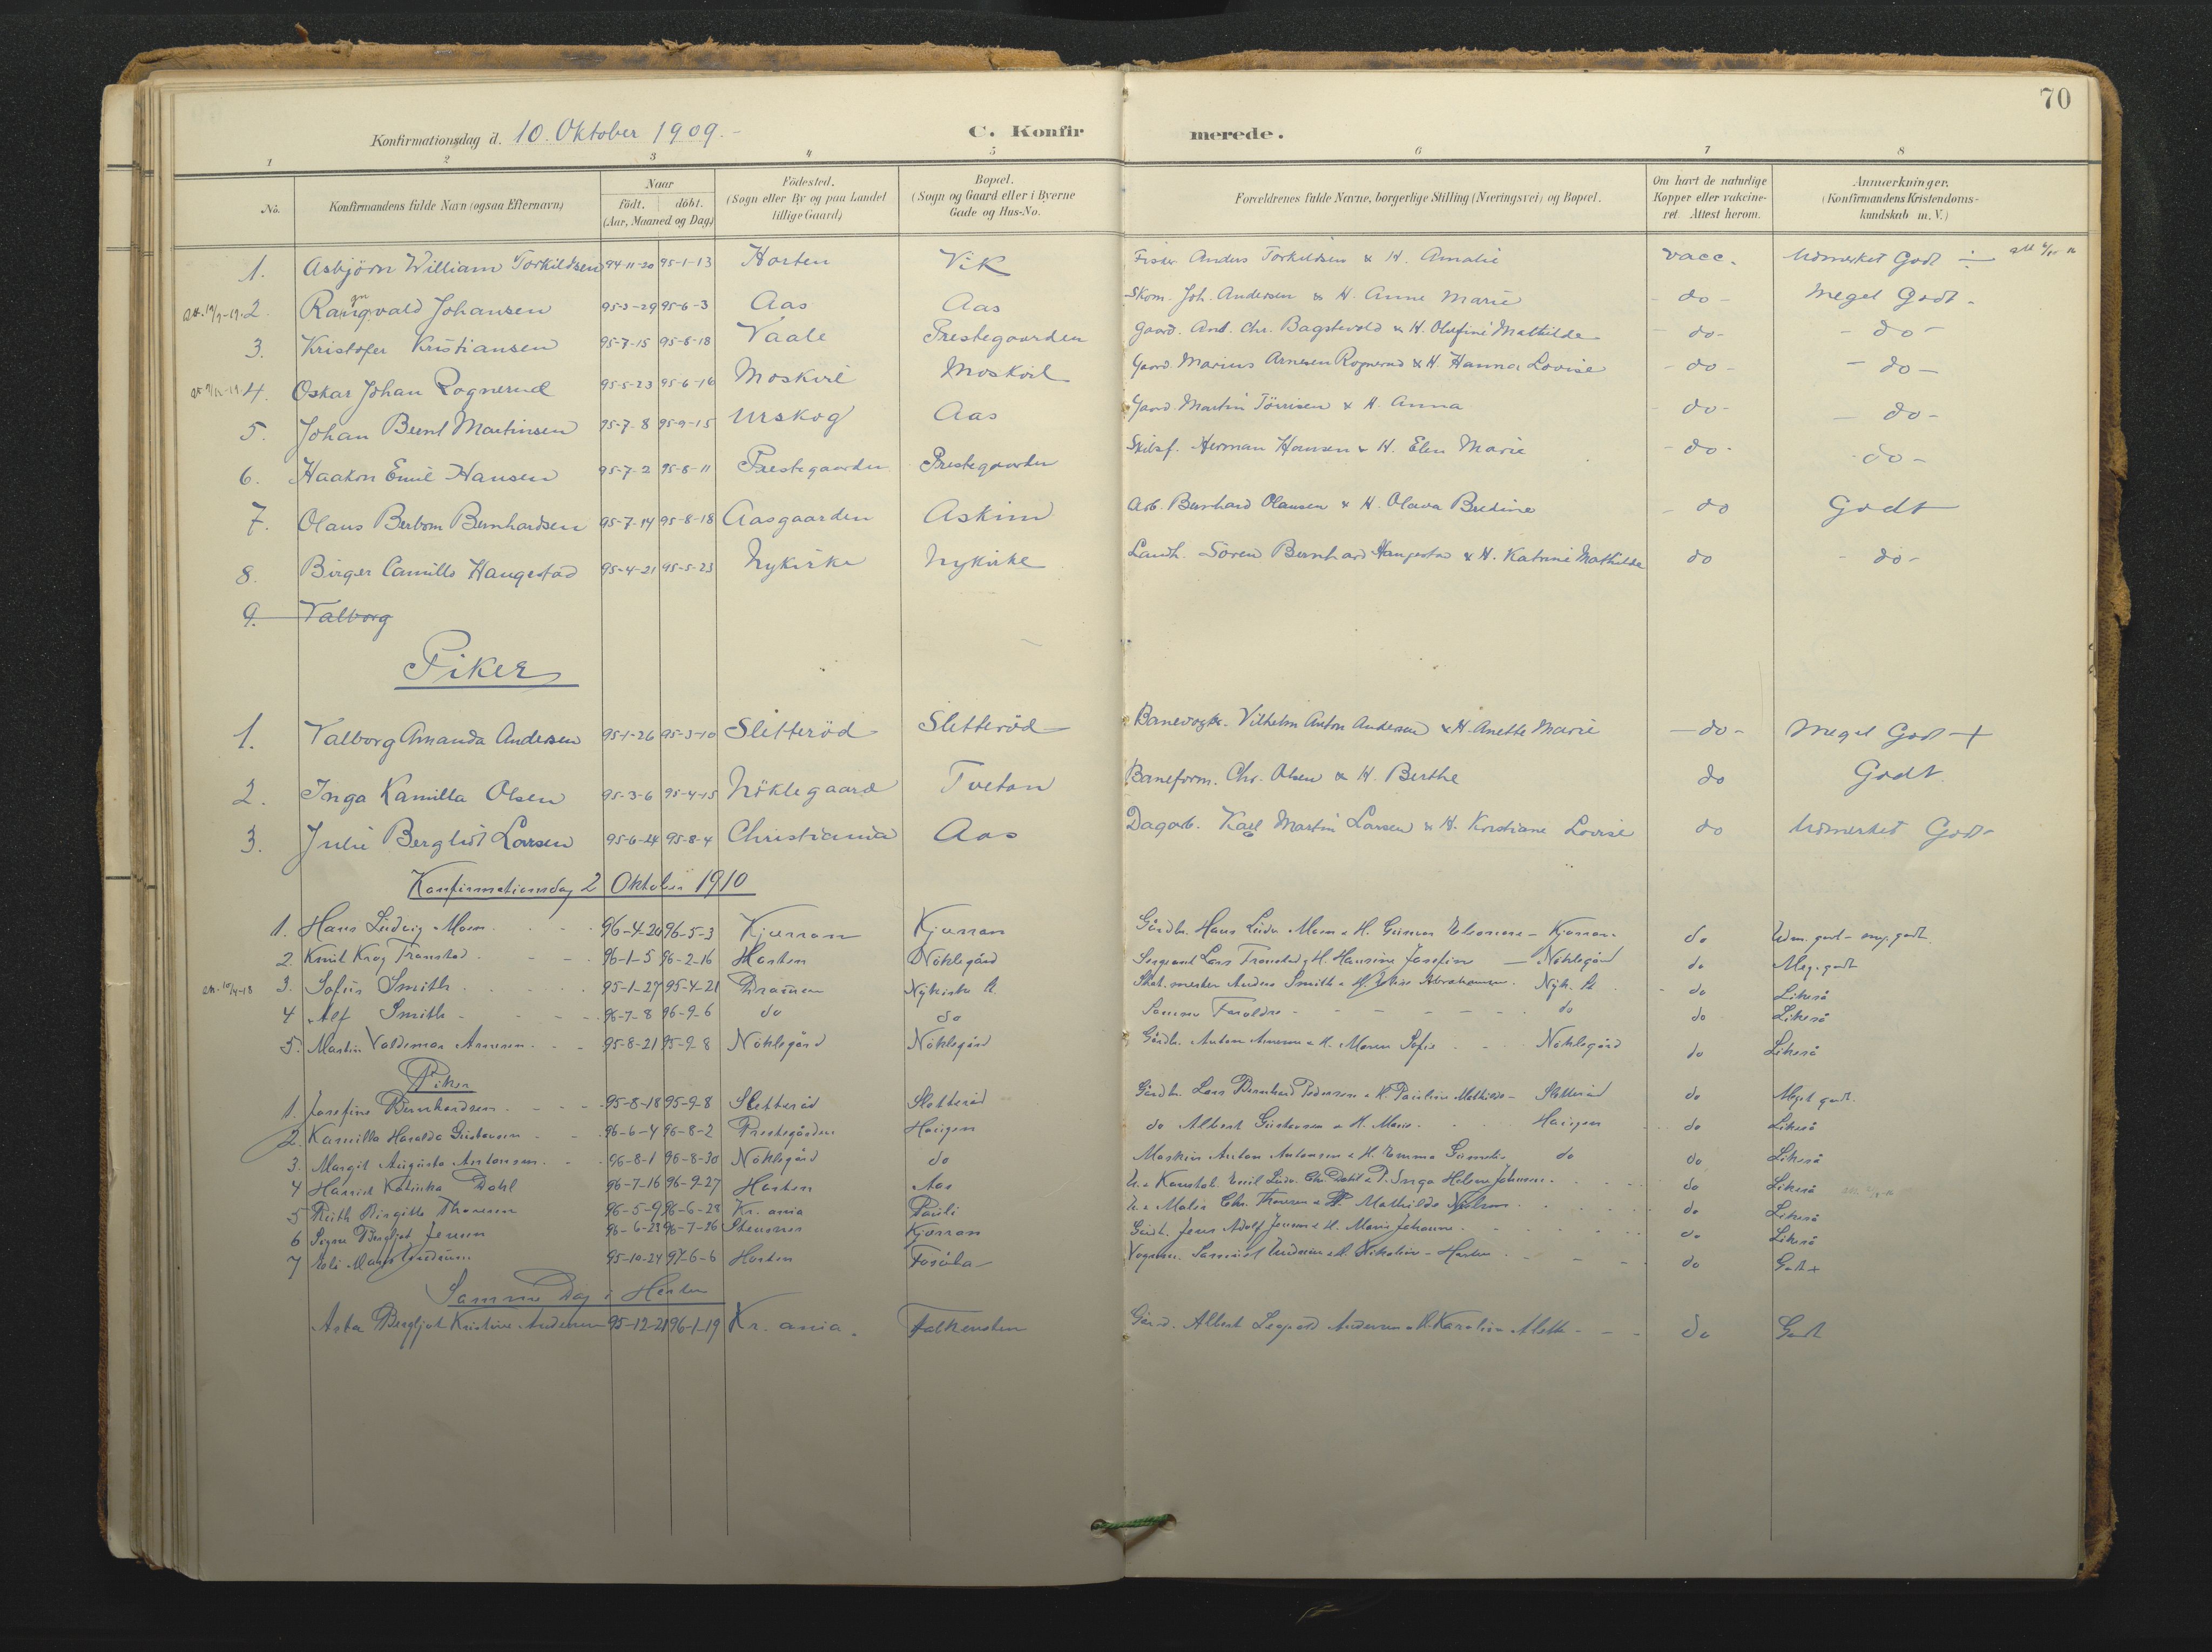 70
Konfirmationsdag d. 10. Oktober 1909.-
C. Konfirmerede.
1 2 3 4 5 6 7 8
No. Konfirmandens fulde Navn (ogsaa Efternavn) Naar födt. döbt. (Aar, Maaned og Dag) Födested. (Sogn eller By og paa Landet tillige Gaard) Bopæl. (Sogn og Gaard eller i Byerne Gade og Hus-No. Forældrenes fulde Navne, borgerlige Stilling (Næringsvei) og Bopæl. Om havt de naturlige Kopper eller vakcineret. Attest herom. Anmærkninger. (Konfirmandens Kristendomskundskab m. V.)
1. Asbjörn William Torkildsen 94-11-20 95-1-13 Horten Vik Anders Torkildsen & H. Amalie vacc. Udmerket Godt ÷
2. Rangvald Johansen 95-3-29 95-6-3 Aas Aas Skom. Joh. Andersen & H. Anne Marie - do - Meget Godt -
3. Kristofer Kristiansen 95-7-15 95-8-18 Vaale Prestegaarden Gaard. And. Chr. Bagstevold & H. Olufine Mathilde - do - - do -
4. Oskar Johan Rognerud 95-5-23 95-6-16 Moskvil Moskvil Gaard. Marius Arnesen Rognerud & H. Hanna Lovise - do - - do -
5. Johan Bernt Martinsen 95-7-8 95-9-15 Urskog Aas Gaard. Martin Törrisen & H. Anna - do - - do -
6. Haakon Emil Hansen 95-7-2 95-8-11 Prestegaarden Prestegaarden Skibsf. Herman Hansen & H. Elen Marie - do - - do -
7. Olaus Berbom Bernhardsen 95-7-14 95-8-18 Aasgaarden Askim Arb. Bernhard Olausen & H. Olava Bredine - do Godt
8. Birger Camillo Haugestad 95-4-21 95-5-23 Nykirke Nykirke Landh. Sören Bernhard Haugestad & H. Katrine Mathilde do - do -
9. Valborg
Piker
1. Valborg Amanda Andersen 95-1-26 95-3-10 Sletteröd Sletteröd Banevogt. Vilhelm Anton Andersen & H. Anette Marie - do - Meget Godt +
2. Inga Kamilla Olsen 95-3-6 95-4-15 Nöklegaard Tveten Baneform. Chr. Olsen & H. Berthe do Godt.
3. Julie Bergliot Larsen 95-6-24 95-8-4 Christiania Aas Dagarb. Karl Martin Larsen & H. Kristiane Lovise do Udmerket Godt
Konfirmationsdag 2 Oktober 1910
1. Hans Ludvig Moen 96-4-20 96-5-3 Kjærran Kjærran Gårdbr. Hans Ludv. Moen & H. Gunvor Eleonore - Kjærran do Udm. godt - meg. godt.
2. Knut Krog Tronstad 96-1-5 96-2-16 Horten Nöklegård Sergeant Lars Tronstad & H. Hansine Josefine - Nöklegård do Meg. godt
3. Sofus Smith 95-1-27 95-4-21 Drammen Nykirke St. Anders Smith & H. Abrahamsen. Nyk. St. do Likeså
4 Alf Smith 96-7-8 96-9-6 do do Samme Foreldre do do Likeså
5. Martin Valdemar Arnesen 95-8-21 95-9-8 Nöklegård Nöklegård Gårdbr. Anton Arnesen & H. Maren Sofie Nöklegård do Likeså
Piker
1. Josefine Bernhardsen 95-8-18 95-9-8 Sletteröd Sletteröd Gårdbr. Lars Bernhard Pedersen & H. Pauline Mathilde - Sletteröd do Meget godt.
2. Kamilla Haralda Gustavsen 96-6-4 96-8-2 Prestegården Haugen do Albert Gustavsen & H. Marie Haugen do Likeså
3. Margit Augusta Antonsen 96-8-1 96-8-30 Nöklegård do Maskin Anton Antonsen & H. Emma do do Likeså
4 Harriet Katinka Dahl 96-7-16 96-9-27 Horten Aas U. & Konstab. Emil Ludv. Chr. Dahl & P. Inga Helene Johnsen do Likeså
5 Ruth Birgitte Thoresen 96-5-9 96-6-28 Kr. ania Pauli U. & Maler Chr. Thoresen & P. Mathilde do Likeså
6 Signe Bergljot Jensen 96-6-28 96-7-26 Kjærran Gårdb. Jens Adolf Jensen & H. Marie Johanne do Likeså
7 95-10-24 97-6-6 Horten Vognm. Samuel & H. Nikoline - Horten do Godt +
Samme Dag i Horten
Asta Bergljot Kristine Andersen 95-12-21 96-1-19 Kr. ania. Falkensten Gård. Albert Leopold Andersen & H. Karoline Mette do Godt